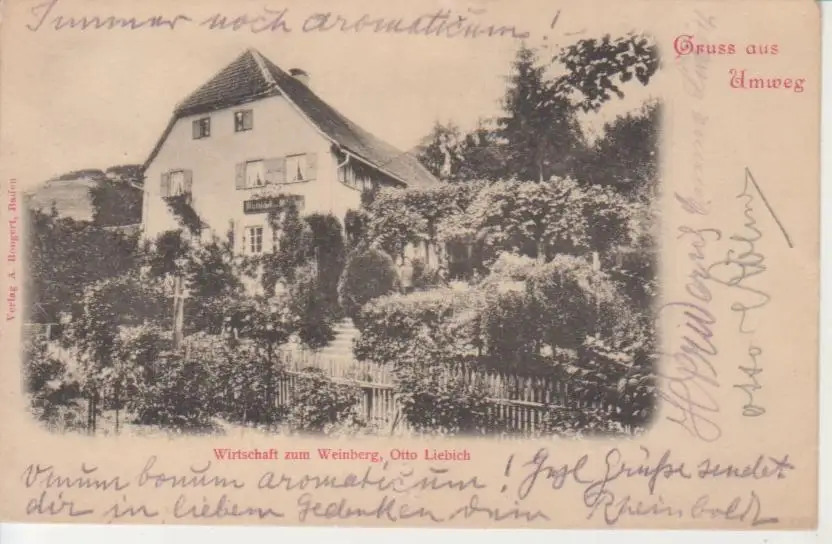 Immer noch aromaticum!
Gruss aus
Umweg
Verlag A. Rongert, Baden
Otto Böhm
Wirtschaft zum Weinberg, Otto Liebich
Vinum bonum aromaticum! Grüße sendet
dir in liebem Gedenken dein Rheinboldt